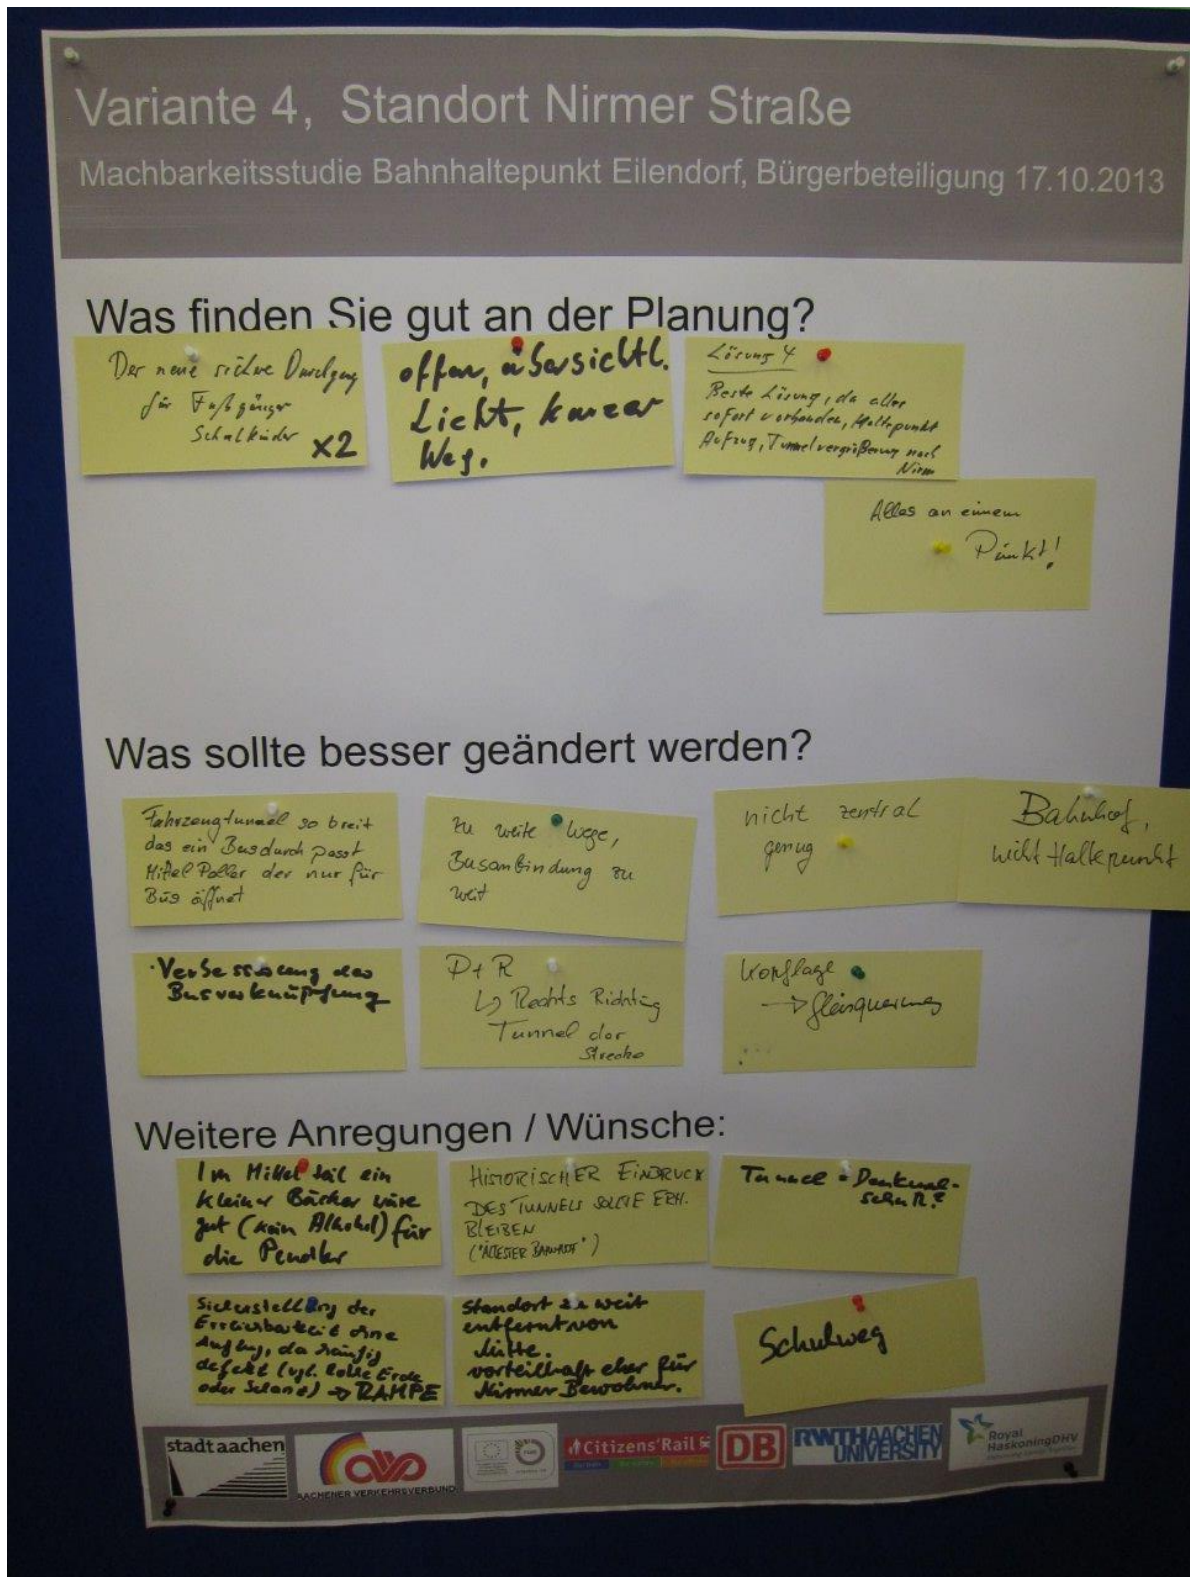 Variante 4, Standort Nirmer Straße
Machbarkeitsstudie Bahnhaltepunkt Eilendorf, Bürgerbeteiligung 17.10.2013
Was finden Sie gut an der Planung?
Der neue sichere Durchgang
für Fußgänger
Schulkinder x2
offen, übersichtl.
Licht, kurzer
Weg.
Lösung 4
Beste Lösung, da alles
sofort vorhanden, Haltepunkt
Aufzug, Tunnelvergrößerung nach
Nirm
Alles an einem
Punkt!
Was sollte besser geändert werden?
Fahrzeugtunnel so breit
das ein Bus durch passt
Mittel Poller der nur für
Bus öffnet
zu weite Wege,
Busanbindung zu
weit
nicht zentral
genug
Bahnhof,
nicht Haltepunkt
Verbesserung der
Busverknüpfung
P+R
↳ Rechts Richtung
Tunnel der
Strecke
Kopflage
→ Gleisquerung
Weitere Anregungen / Wünsche:
Im Mittelteil ein
kleiner Bäcker wäre
gut (kein Alkohol) für
die Pendler
HISTORISCHER EINDRUCK
DES TUNNELS SOLLTE ERH.
BLEIBEN
("ÄLTESTER BAHNHOF")
Tunnel = Denkmal-
schutz?
Sicherstellung der
Erreichbarkeit ohne
Aufzug, da häufig
defekt (vgl. Rothe Erde
oder Schanz) → RAMPE
Standort zu weit
entfernt von
Mitte.
vorteilhaft eher für
Nirmer Bewohner.
Schulweg
stadt aachen
avv
AACHENER VERKEHRSVERBUND
Citizens' Rail
DB
RWTH AACHEN
UNIVERSITY
Royal
HaskoningDHV